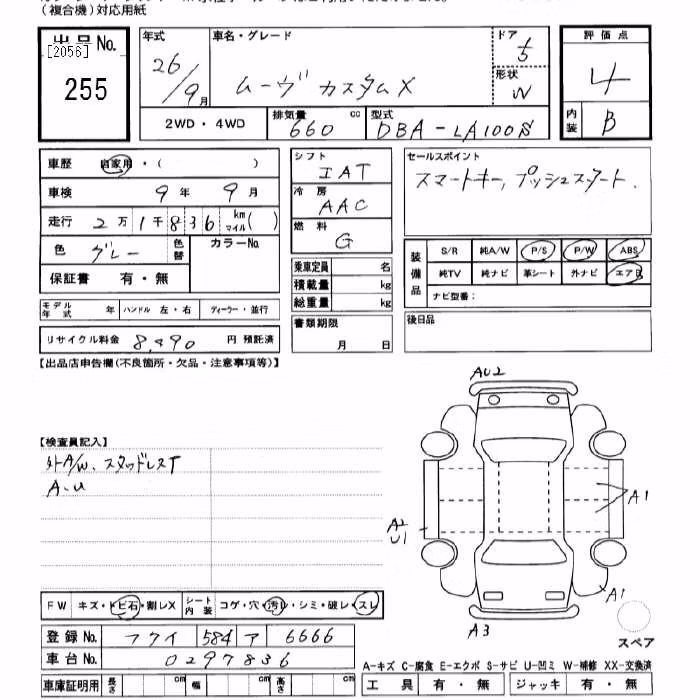 (複合機)対応用紙
出品No.
[2056]
255
年式 26/9月
車名・グレード ムーヴ カスタムX
ドア 5
形状 W
2WD・4WD
排気量 660 cc
型式 DBA-LA100S
評価点 4
内装 B
車歴 自家用・( )
車検 9年 9月
走行 2万1千836 km マイル( )
色 グレー 色替 カラーNo.
保証書 有・無
モデル年式 年 ハンドル 左・右 ディーラー・並行
リサイクル料金 8,490 円 預託済
シフト IAT
冷房 AAC
燃料 G
乗車定員 名
積載量 kg
総重量 kg
書類期限 月 日
セールスポイント
スマートキー, プッシュスタート.
装備品 S/R 純A/W P/S P/W ABS
純TV 純ナビ 革シート 外ナビ エアB
ナビ型番:
後日品
【出品店申告欄(不良箇所・欠品・注意事項等)】
【検査員記入】
外A/W、スタッドレスT
A・U
AU2
A1
A2
U1
A1
A3
スペア
FW キズ・トビ石・割レX シート内装 コゲ・穴・汚レ・シミ・破レ・スレ
登録No. フクイ 584 ア 6666
車台No. 0297836
車庫証明用 長さ cm 幅 cm 高さ cm
A-キズ C-腐食 E-エクボ S-サビ U-凹ミ W-補修 XX-交換済
工具 有・無 ジャッキ 有・無